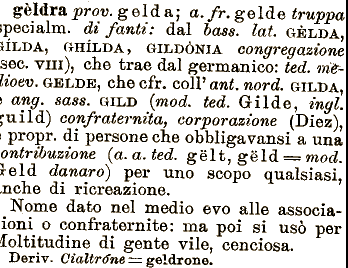 gèldra prov. gelda; a. fr. gelde truppa
specialm. di fanti: dal bass. lat. GÈLDA,
GÍLDA, GHÍLDA, GILDÒNIA congregazione
sec. VIII), che trae dal germanico: ted. me-
dioev. GELDE, che cfr. coll' ant. nord. GILDA,
e ang. sass. GILD (mod. ted. Gilde, ingl.
guild) confraternita, corporazione (Diez),
e propr. di persone che obbligavansi a una
contribuzione (a. a. ted. gëlt, gëld = mod.
Geld danaro) per uno scopo qualsiasi,
anche di ricreazione.
Nome dato nel medio evo alle associa-
zioni o confraternite: ma poi si usò per
Moltitudine di gente vile, cenciosa.
Deriv. Cialtróne = geldrone.